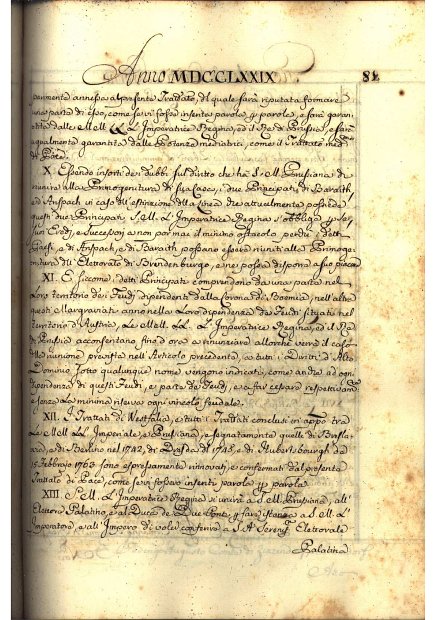 Anno MDCCLXXIX
84
parimente annessa al presente Trattato, il quale sarà riputata formare
una parte di esso, come se vi fosse inserita parola p parola, e sarà garan
tita dalle M.M. LL. L'Imperatrice Regina, ed il Re di Prussia, e sarà
egualmente garantita dalle Potenze mediatrici, come il Trattato med.
di Pace.
X. Essendo insorti de' dubbi sul diritto che ha S. M. Prussiana di
riunire alla Primogenitura di sua Casa, i due Principati di Bareith,
ed Anspach in caso dell'estinzione della Linea che attualmente possiede
questi due Principati S. M. L'Imperatrice Regina s'obbliga p se,
suoi Eredi, e Successori a non por mai il minimo ostacolo perchè i detti
Paesi, di Anspach, e di Bareith possano essere riuniti alla Primoge
nitura dell'Elettorato di Brandenburgo, e nei possa disporre a suo piacere
XI. E siccome i detti Principati comprendono da una parte nel
Loro territorio dei Feudi dipendenti dalla Corona di Boemia, nell'altra
questi Margraviati anno nella Loro dipendenza de' Feudi situati nel
territorio d'Austria, Le M.M. LL. L'Imperatrice Regina, ed il Re
di Prussia acconsentano, fino d'ora a rinunziare allorchè verrà il caso
della riunione prevista nell'Articolo precedente, a tutti i Diritti d'Alto
Dominio sotto qualunque nome vengono indicati, come anche ad ogni
dipendenza di questi Feudi, e parte de' Feudi, e a far cessare respettivam
e senza La minima riserva ogni vincolo feudale.
XII. I Trattati di Westfalia, e tutti i Trattati conclusi in appo tra
Le M.M. LL. Imperiale, e Prussiana, e segnatamente quelli di Breslavia,
e di Berlino nel 1742, di Dresda del 1745, e di Hubertsbourgh de
15 Febbrajo 1763. sono espressamente rinnovati, e confermati dal presente
Trattato di Pace, come se vi fossero inseriti parola p parola.
XIII. S. M. L'Imperatrice Regina si unirà a S. M. Prussiana, all'
Elettore Palatino, e al Duca de Due Ponti p fare istanza a S. M. L'
Imperatore, e all'Impero di voler conferire a S. A. Seren. Elettorale
Palatina